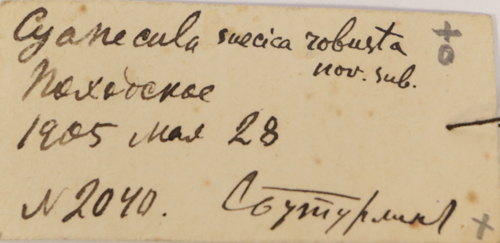 Cyanecula suecica robusta
nov. sub.
Походское
1905 мая 28
N 2040. С. Бутурлинъ